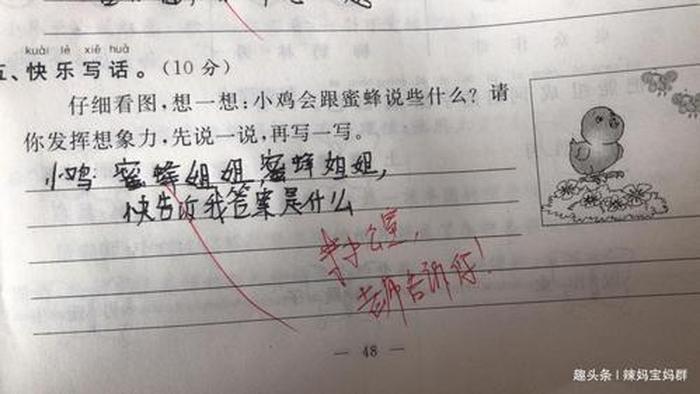 kuài lè xiě huà
五、快乐写话。(10分)
仔细看图,想一想:小鸡会跟蜜蜂说些什么?请
你发挥想象力,先说一说,再写一写。
小鸡:蜜蜂姐姐,蜜蜂姐姐,
快告诉我答案是什么
来办公室,
老师告诉你!
— 48 —
趣头条 | 辣妈宝妈群